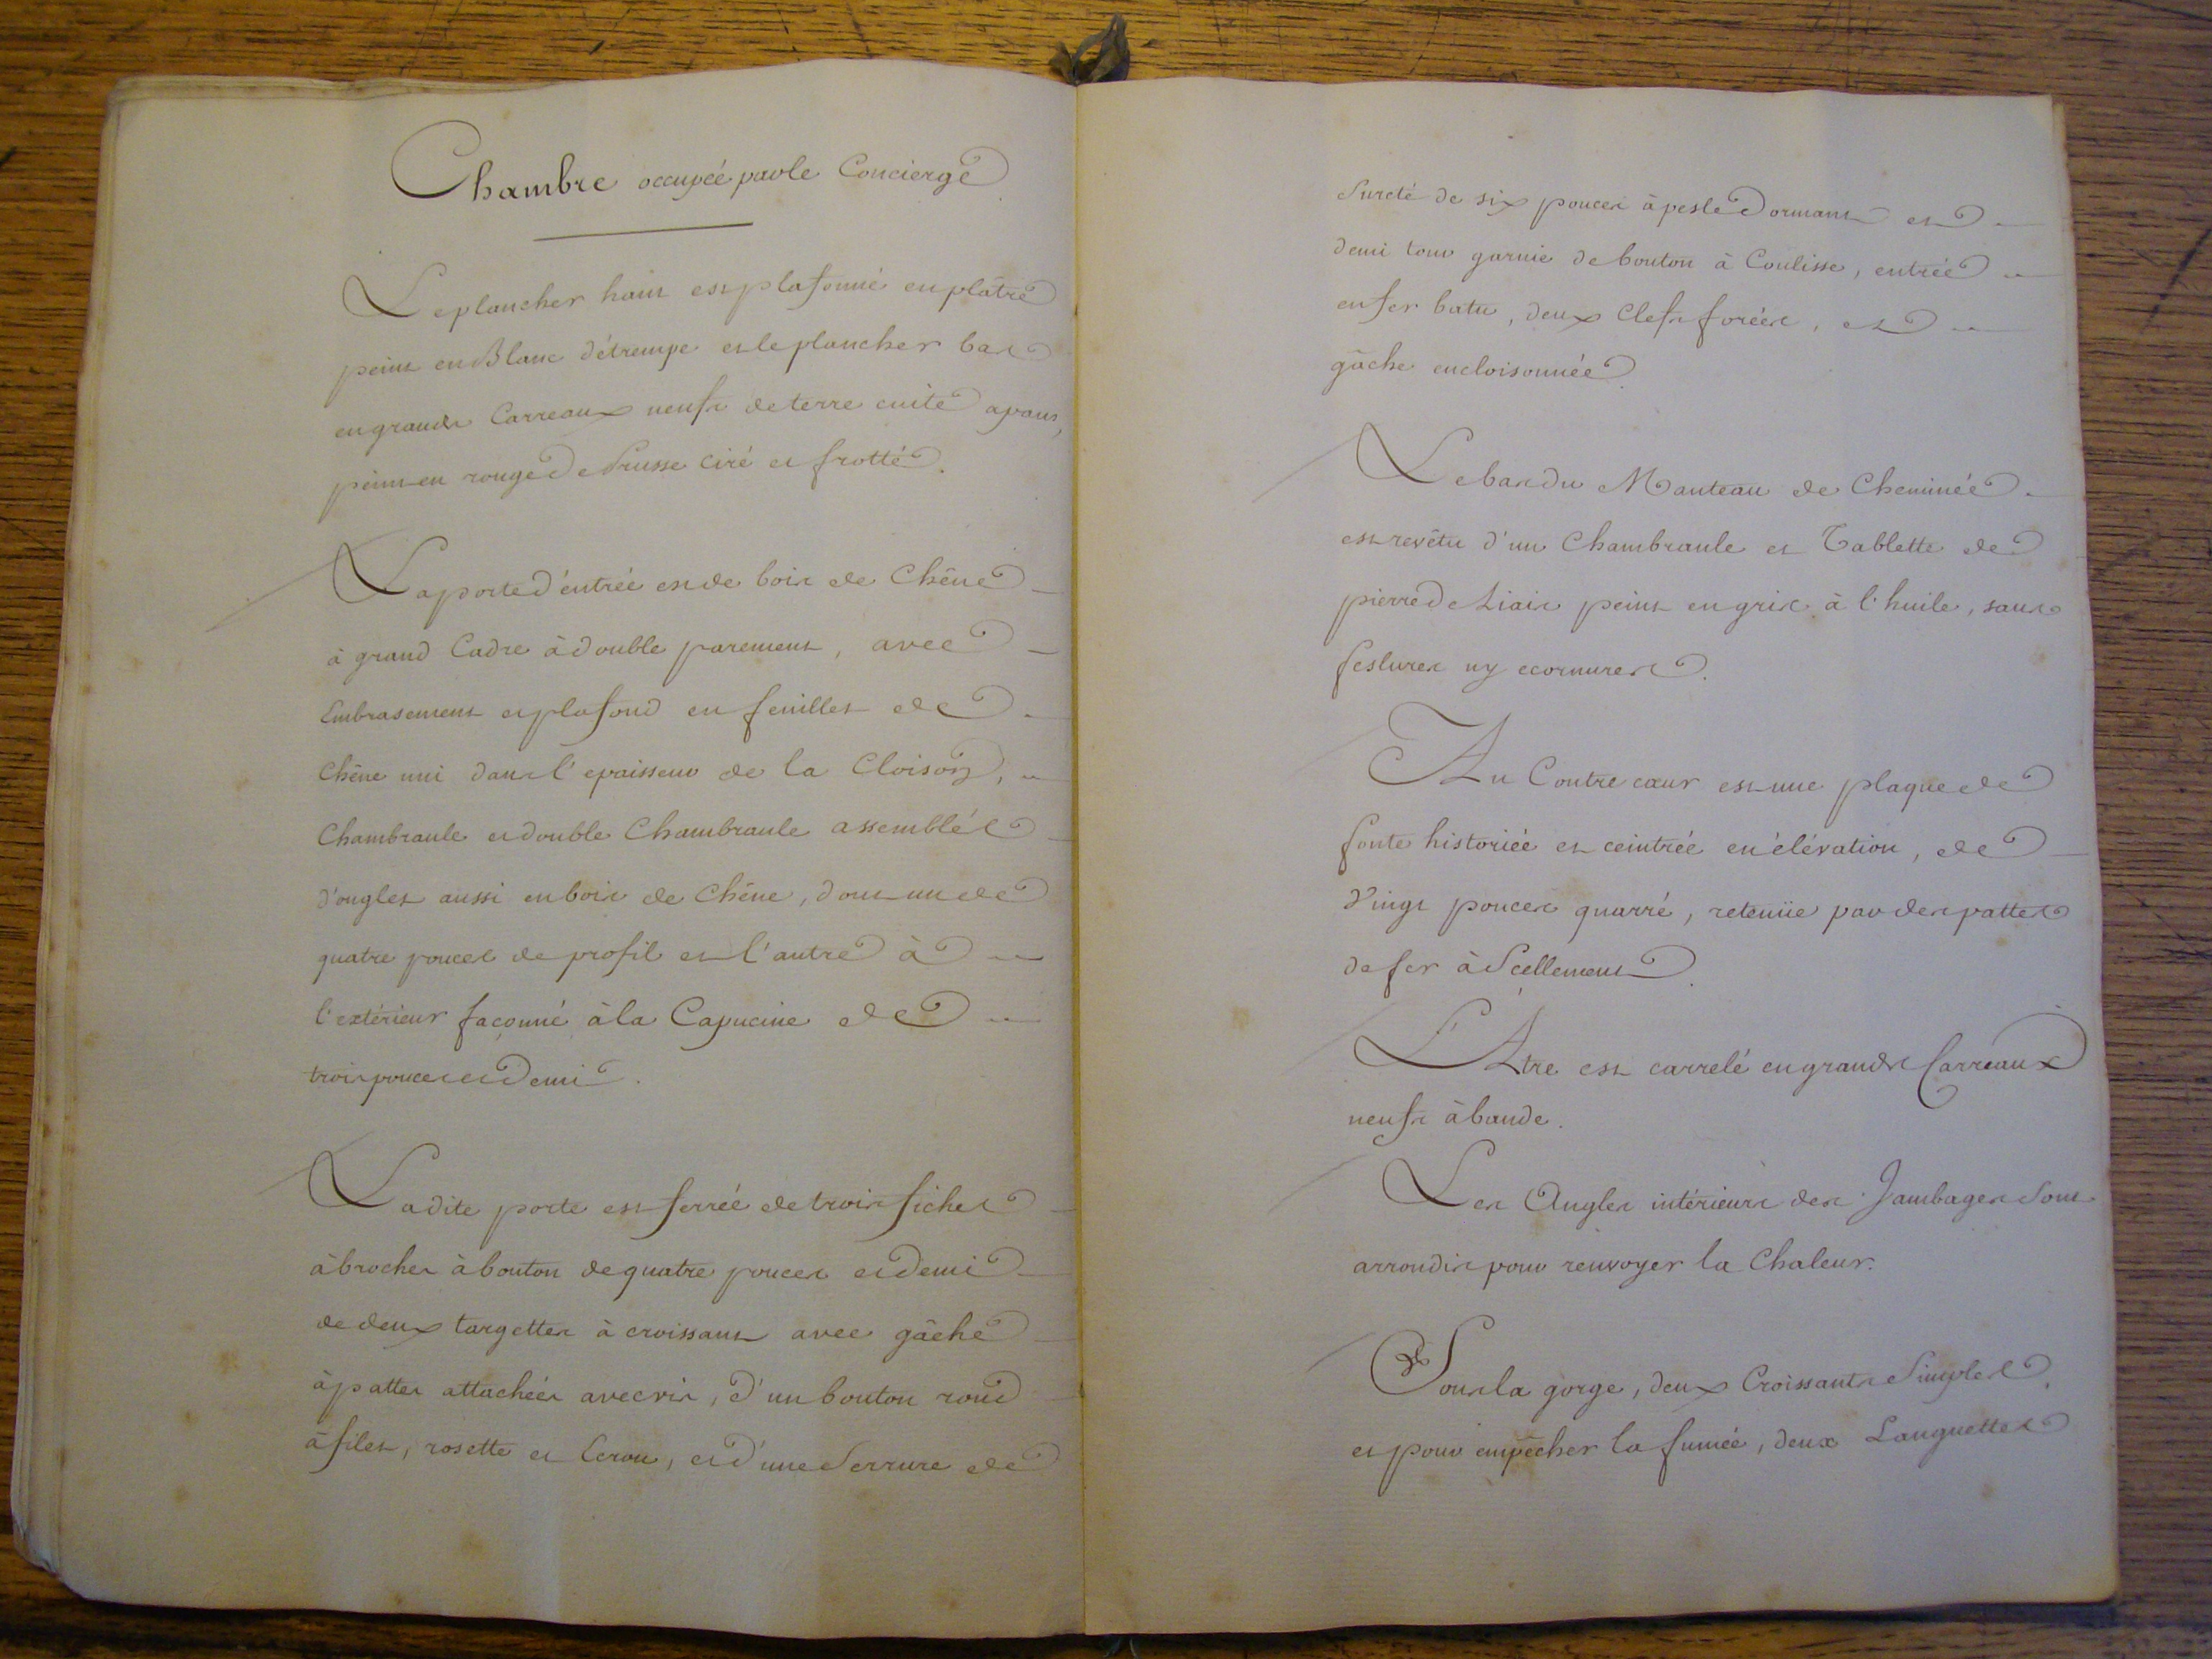 Chambre occupée par le Concierge
Le plancher haut est plafonné en plâtre
peint en Blanc d'étrempe et le plancher bas
en grands Carreaux neufs de terre cuite apans,
peint en rouge de Prusse ciré et frotté.
La porte d'entrée est de bois de Chêne
à grand Cadre à double parement, avec
Embrasement et plafond en feuillet de
Chêne uni dans l'epaisseur de la Cloison,
Chambranle et double Chambranle assemblés
d'onglet aussi en bois de Chêne, dont un de
quatre pouces de profil et l'autre à
l'extérieur façonné à la Capucine de
trois pouces et Demi.
Ladite porte est ferrée de trois fiches
à broches à bouton de quatre pouces et demi
de deux targettes à croissant avec gâche
à pattes attachées avec vis, d'un bouton rond
à filet, rosette et Ecrou, et d'une Serrure de
Sureté de six pouces à pesle Dormant et
demi tour garnie de bouton à Coulisse, entrée
en fer batu, deux Clefs forées, et
gâche encloisonnée.
Le bas du Manteau de Cheminée
est revêtu d'un Chambranle et Tablette de
pierre de Liais peint en gris à l'huile, sans
feslures ny ecornures.
Au Contre cœur est une plaque de
fonte historiée et ceintrée en élévation, de
Vingt pouces quarré, retenüe par des pattes
de fer à Scellement.
L'Atre est carrelé en grands Carreaux
neufs à bande.
Les Angles intérieurs des Jambages Sont
arrondis pour renvoyer la Chaleur.
Sous la gorge, deux Croissants Simples,
et pour empêcher la fumée, deux Languettes